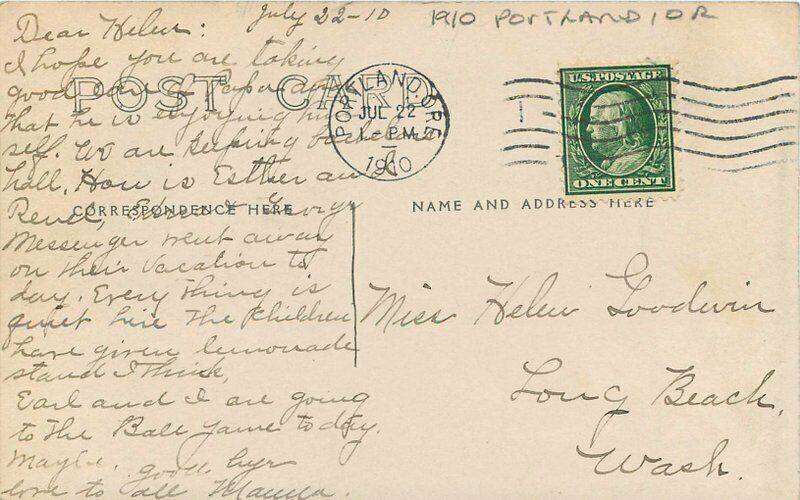 July 22-10
1910 PORTLAND, OR
Dear Helen:
I hope you are taking
good care of Papa and
that he is enjoying him
self. We are keeping bachelors
hall. How is Esther and
George
Messenger went away
on their vacation to
day. Every thing is
quiet here The children
have given lemonade
stand I think,
Earl and I are going
to the Ball game to day.
Maybe. good bye
love to all Mamma.
POST CARD
CORRESPONDENCE HERE
NAME AND ADDRESS HERE
PORTLAND, ORE.
JUL 22
1 - PM
1910
U.S. POSTAGE
ONE CENT
Miss Helen Goodwin
Long Beach,
Wash.